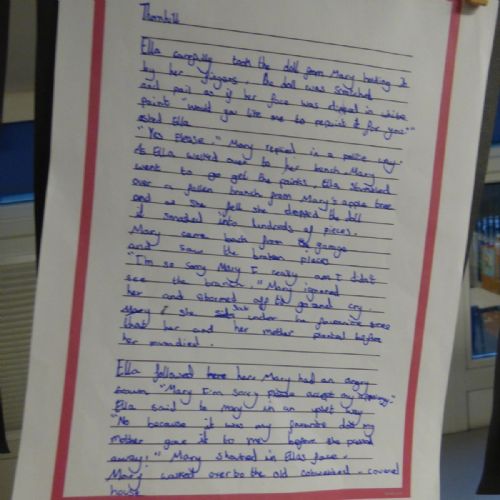 Thornhill
Ella carefully took the doll from Mary holding it
by her fingers. The doll was scratched
and pail as if her face was dipped in white
paint "would you like me to repaint it for you"
asked Ella
"Yes Please." Mary replied in a polite way.
As Ella walked over to her bench, Mary
went to go get the paints, Ella stumbled
over a fallen branch from Mary's apple tree
and as she fell she dropped the doll
it smashed into hundreds of pieces.
Mary came back from the garage
and saw the broken pieces
"I'm so sorry Mary I really am I didn't
see the branch." Mary ignored
her and stormed off to go and cry.
Mary she sat under her favourite tree
that her and her mother planted before
her mum died.
Ella followed her Mary had an angry
frown "Mary I'm sorry please accept my apology"
Ella said to mary in an upset way
"No because it was my favourite doll my
mother gave it to me before she passed
away!" Mary shouted in Ellas face.
Mary went over to the old cobweb - covered
house